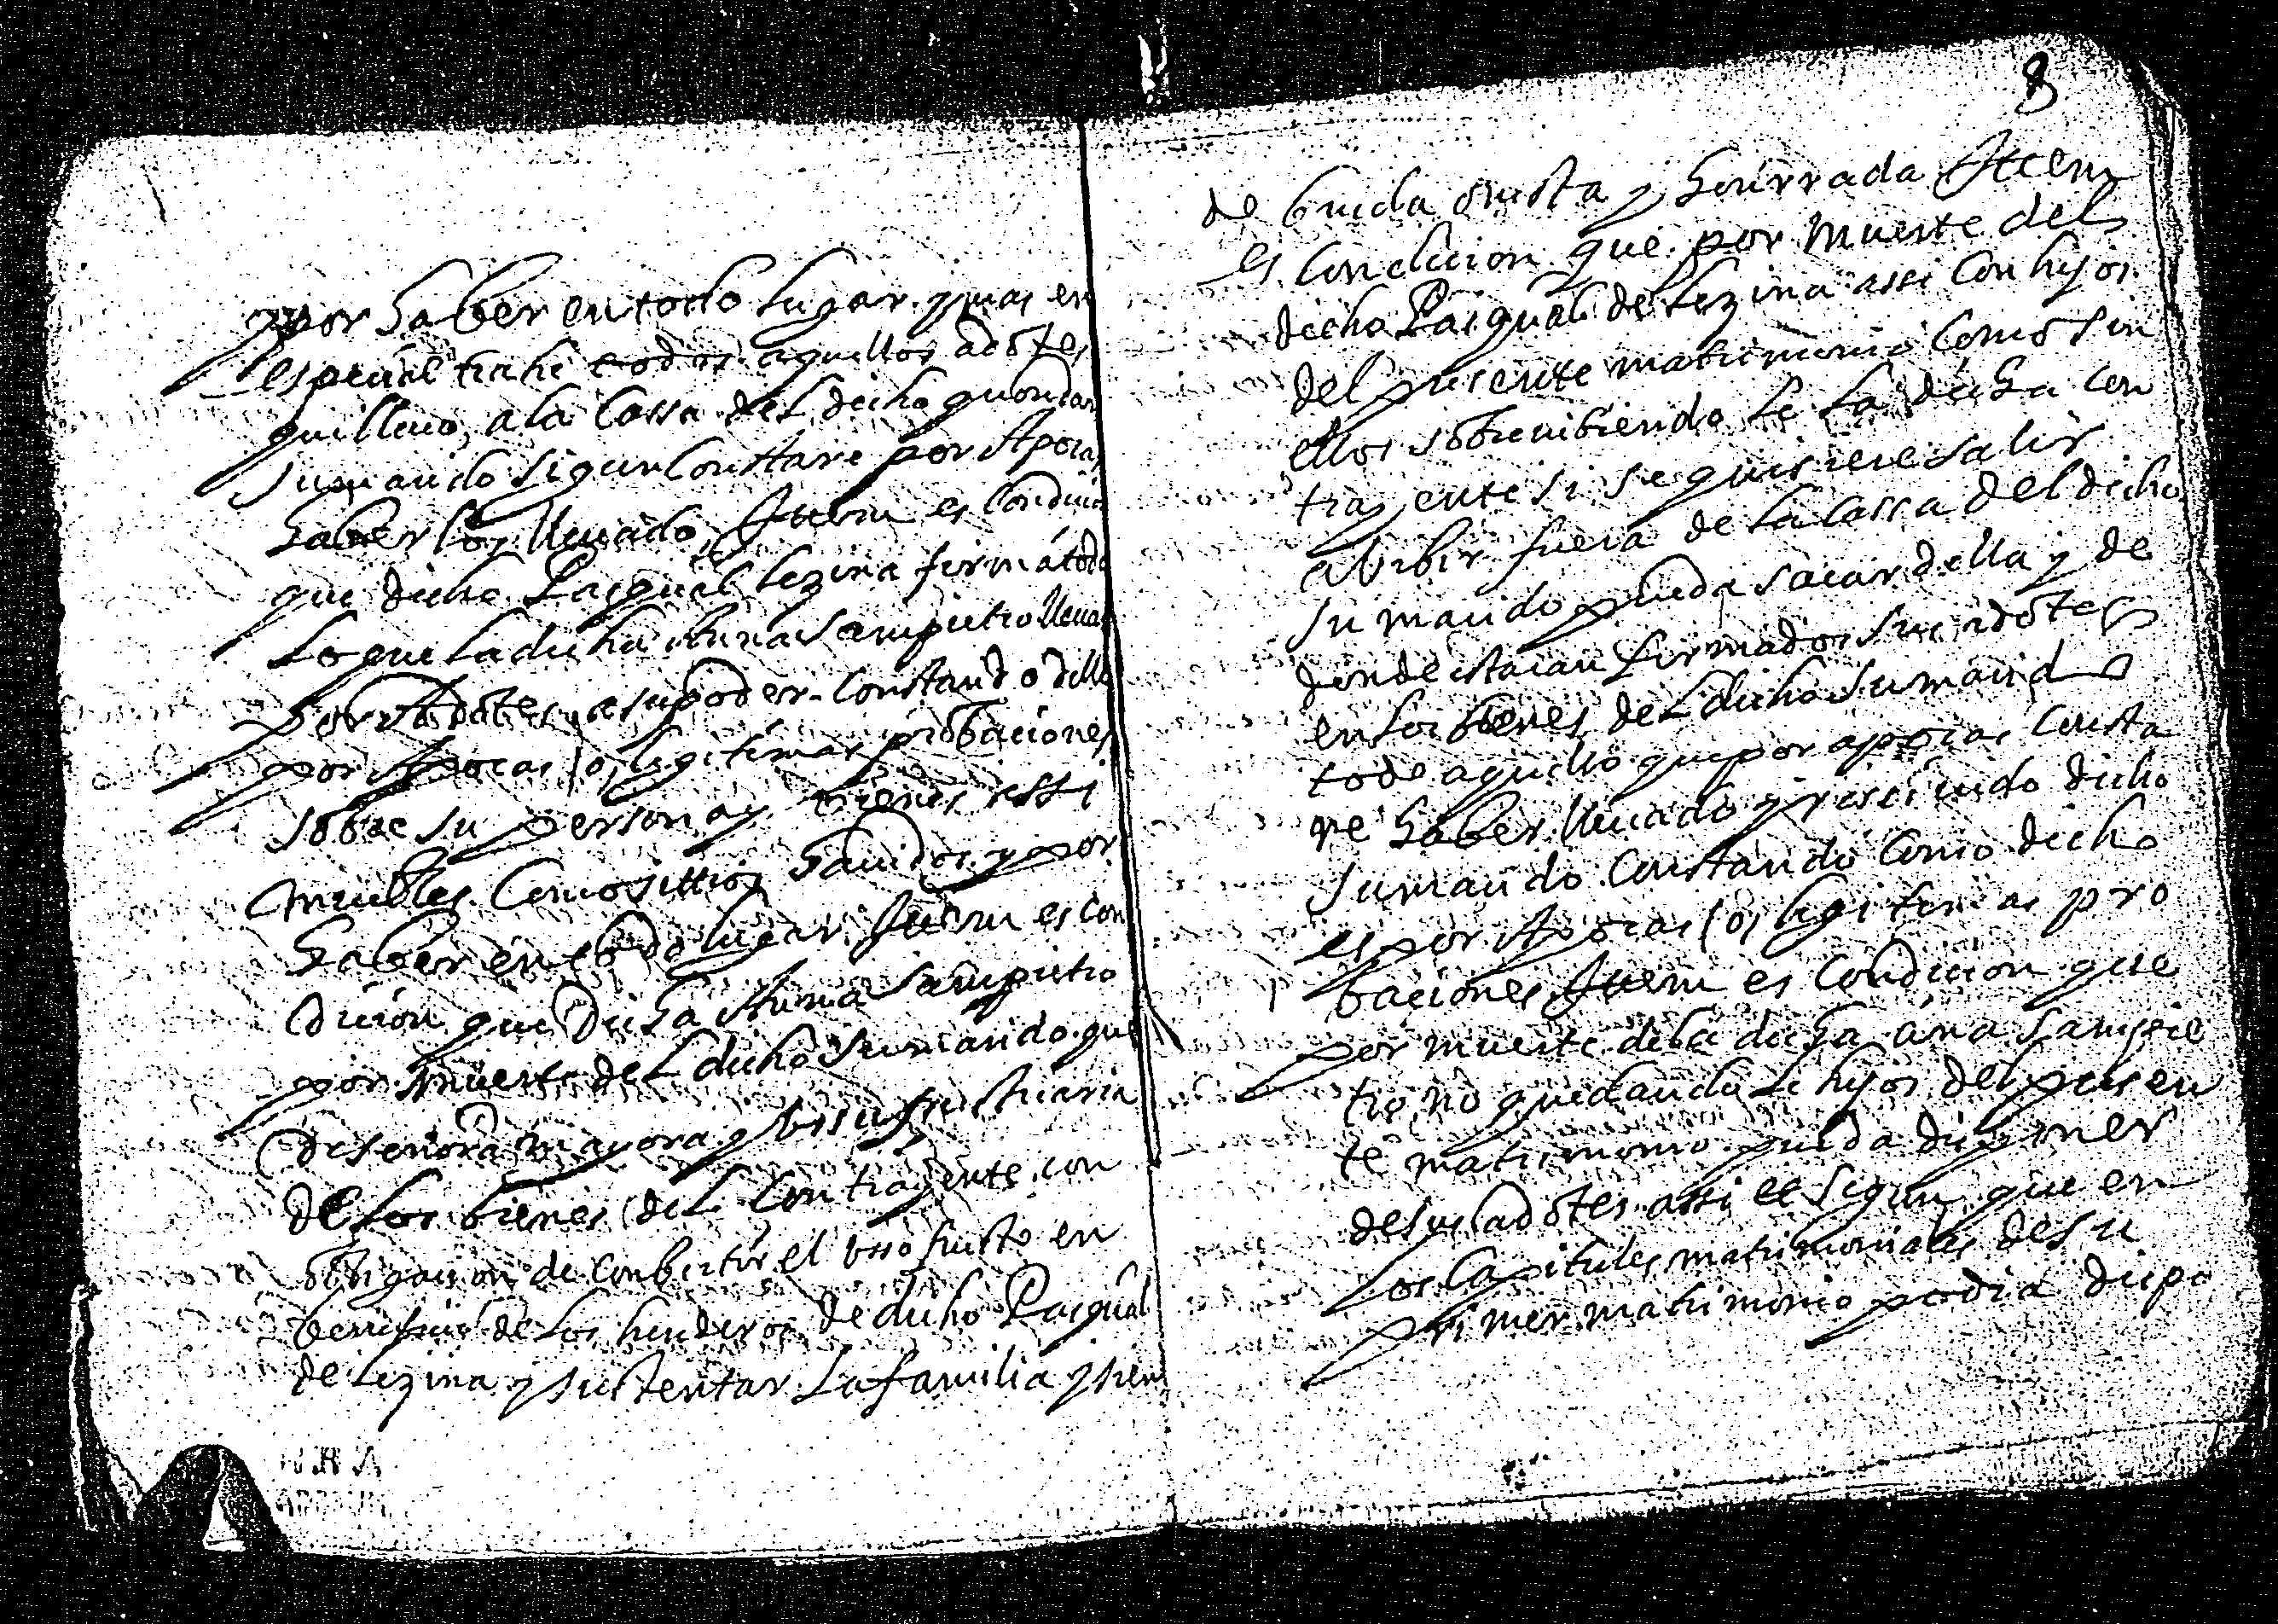 por haber en todo lugar y mas en
especial trahe todos aquellos adotes
que lleuo a la Cassa del dicho quondam
su marido segun Constare por Apocas
haber los lleuado Ittem es Condicio
que dicho Pasqual Lezina firma todo
lo que la dicha Anna Sampietro lleuar
por Adotes a su poder Constando dello
por Apocas /o/ legitimas probaciones
sobre su persona y bienes assi
muebles Como sittios hauidos y por
haber en todo lugar Ittem es con
dicion que dicha Anna Sampietro
por muerte del dicho su marido quede
de señora mayora y ussufructuaria
de los bienes del Contrayente con
obligacion de Conbertir el usso fructo en
beneficio de los herederos de dicho Pasqual
de Lezina y sustentar la familia y sien
8
de buida casta y honrrada Ittem
es Condicion que por muerte del
dicho Pasqual de Lezina assi Con hijos
del presente matrimonio Como sin
ellos sobreuibiendo le la dicha con
trayente si se quisiere salir
a bibir fuera de la Cassa del dicho
su marido pueda sacar della y de
donde estaran firmados sus adotes
en los bienes del dicho su marido
todo aquello que por apocas Consta
re haber lleuado y reseuido dicho
su marido Constando Como dicho
es por Apocas /o/ legitimas pro
baciones Ittem es Condicion que
por muerte de la dicha ana sampie
tro no quedando le hijos del presen
te matrimonio pueda disponer
de sus adotes assi et segun que en
los Capitules matrimoniales de su
primer matrimonio podia dispo